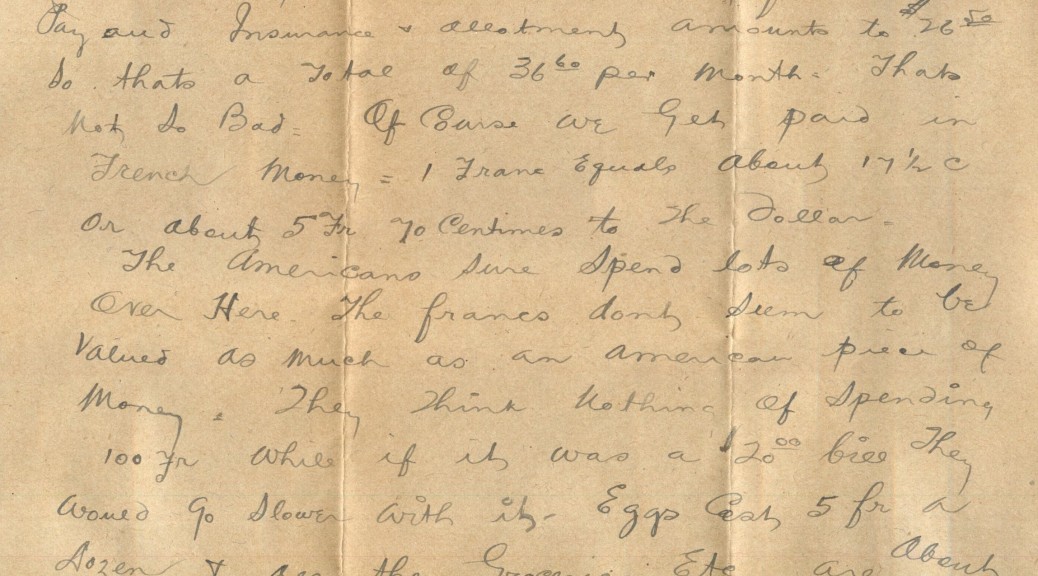 Pay and Insurance & allotment amounts to $26 50
So thats a Total of 36 60 per Month. Thats
Not So Bad = Of Course we Get paid in
French Money = 1 Franc Equals About 17 1/2 c
Or about 5 Fr 70 Centimes to The Dollar -
The Americans Sure Spend lots of Money
Over Here. The francs dont Seem to be
Valued as much as an American piece of
Money. They Think Nothing Of Spending
100 Fr While if it was a $20 00 bill They
Would Go Slower with it - Eggs Cost 5 fr a
Dozen & all the Etc are About